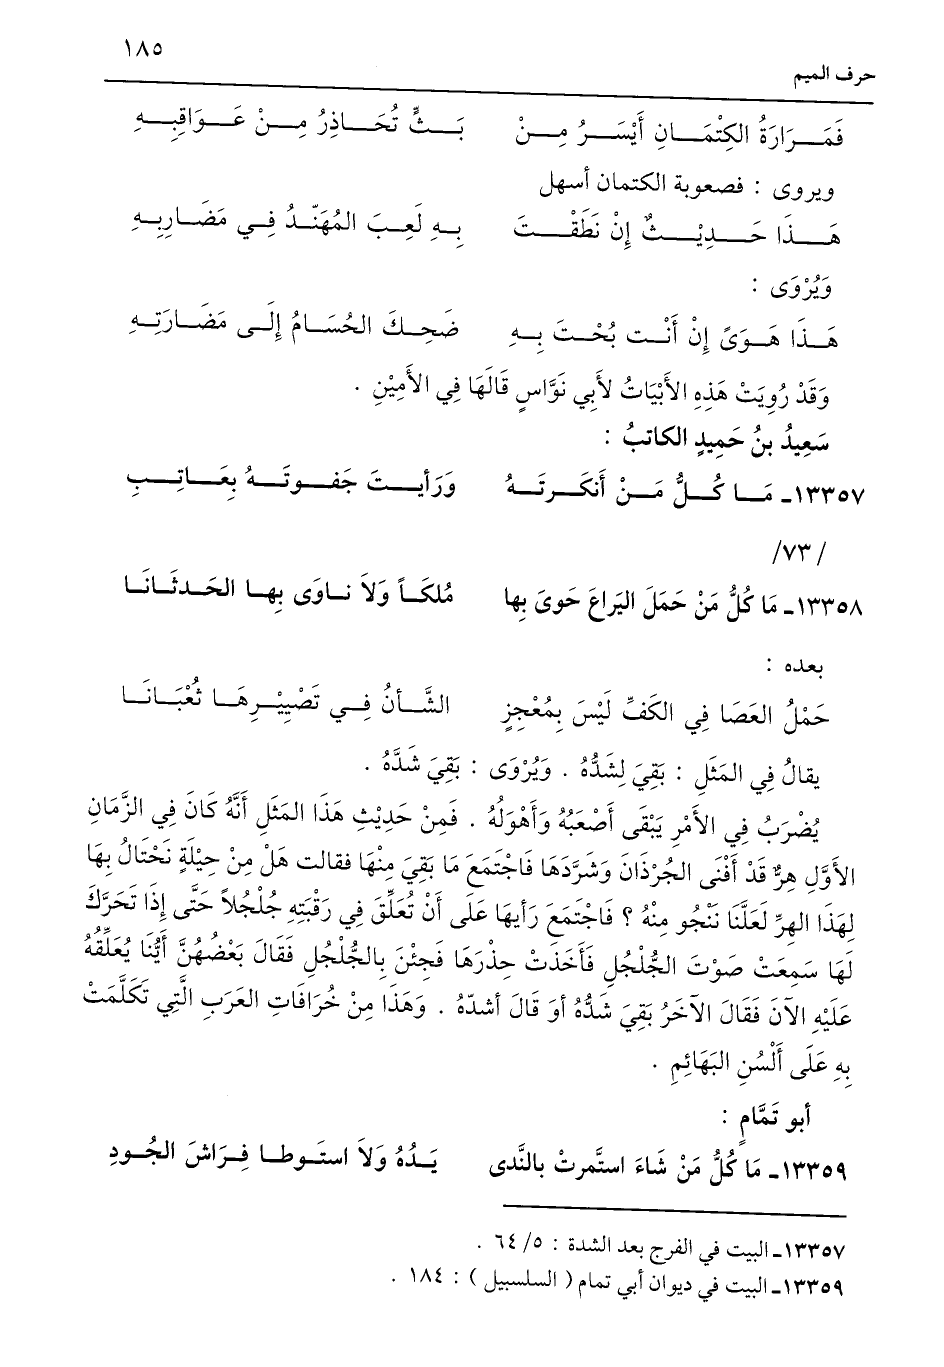 ١٨٥
حرف الميم
فَمَرَارَةُ الكِتْمَانِ أَيْسَرُ مِنْ بَثٍّ تُحَاذِرُ مِنْ عَوَاقِبِهِ
ويروى : فصعوبة الكتمان أسهل
هَذَا حَدِيْثٌ إِنْ نَطَقْتَ بِهِ لَعِبَ المُهَنَّدُ فِي مَضَارِبِهِ
وَيُرْوَى :
هَذَا هَوَىً إِنْ أَنْت بُحْتَ بِهِ ضَحِكَ الحُسَامُ إِلَى مَضَارَتِهِ
وَقَدْ رُوِيَتْ هَذِهِ الأَبْيَاتُ لأَبِي نَوَّاسٍ قَالَهَا فِي الأَمِيْنِ .
سَعِيدُ بنُ حَمِيدٍ الكاتبُ :
١٣٣٥٧ـ مَا كُلُّ مَنْ أَنكَرتَهُ وَرَأيتَ جَفوتَهُ بِعَاتِبِ
/٧٣/
١٣٣٥٨ـ مَا كُلُّ مَنْ حَمَلَ اليَراعَ حَوىَ بِها مُلكَاً وَلاَ ناوَى بِها الحَدثَانَا
بعده :
حَمْلُ العَصَا فِي الكَفِّ لَيْسَ بِمُعْجِزٍ الشَّأنُ فِي تَصْيِيْرِهَا ثُعْبَانَا
يقالُ فِي المَثَلِ : بَقِيَ لِشَدُّهُ . وَيُرْوَى : بَقِيَ شَدَّهُ .
يُضْرَبُ فِي الأَمْرِ يَبْقَى أَصْعَبُهُ وَأَهْوَلُهُ . فَمِنْ حَدِيْثِ هَذَا المَثَلِ أَنَّهُ كَانَ فِي الزَّمَانِ
الأوَّلِ هِرٌّ قَدْ أَفْنَى الجُرْذَانَ وَشَرَّدَهَا فَاجْتَمَعَ مَا بَقِيَ مِنْهَا فقالت هَلْ مِنْ حِيْلَةٍ نَحْتَالُ بِهَا
لِهَذَا الهِرِّ لَعَلَّنَا نَنْجُو مِنْهُ ؟ فَاجْتَمَعَ رَأيها عَلَى أَنْ تُعَلِّقَ فِي رَقْبَتِهِ جُلْجُلاً حَتَّى إِذَا تَحَرَّكَ
لَهَا سَمِعَتْ صَوْتَ الجُلْجُلِ فَأَخَذَتْ حِذْرَهَا فَجِئْنَ بِالجُلْجُلِ فَقَالَ بَعْضُهُنَّ أَيُّنَا يُعَلِّقُهُ
عَلَيْهِ الآنَ فَقَالَ الآخَرُ بَقِيَ شَدُّهُ أو قَالَ أشدّهُ . وَهَذَا مِنْ خُرَافَاتِ العَرَبِ الَّتِي تَكَلَّمَتْ
بِهِ عَلَى أَلْسُنِ البَهَائِمِ .
أبو تَمَّامٍ :
١٣٣٥٩ـ مَا كُلُّ مَنْ شَاءَ استَّمرتْ بالنَّدى يَدُهُ وَلاَ استَوطا فِرَاشَ الجُودِ
١٣٣٥٧ـ البيت في الفرج بعد الشدة : ٥/ ٦٤ .
١٣٣٥٩ـ البيت في ديوان أبي تمام ( السلسبيل ) : ١٨٤ .